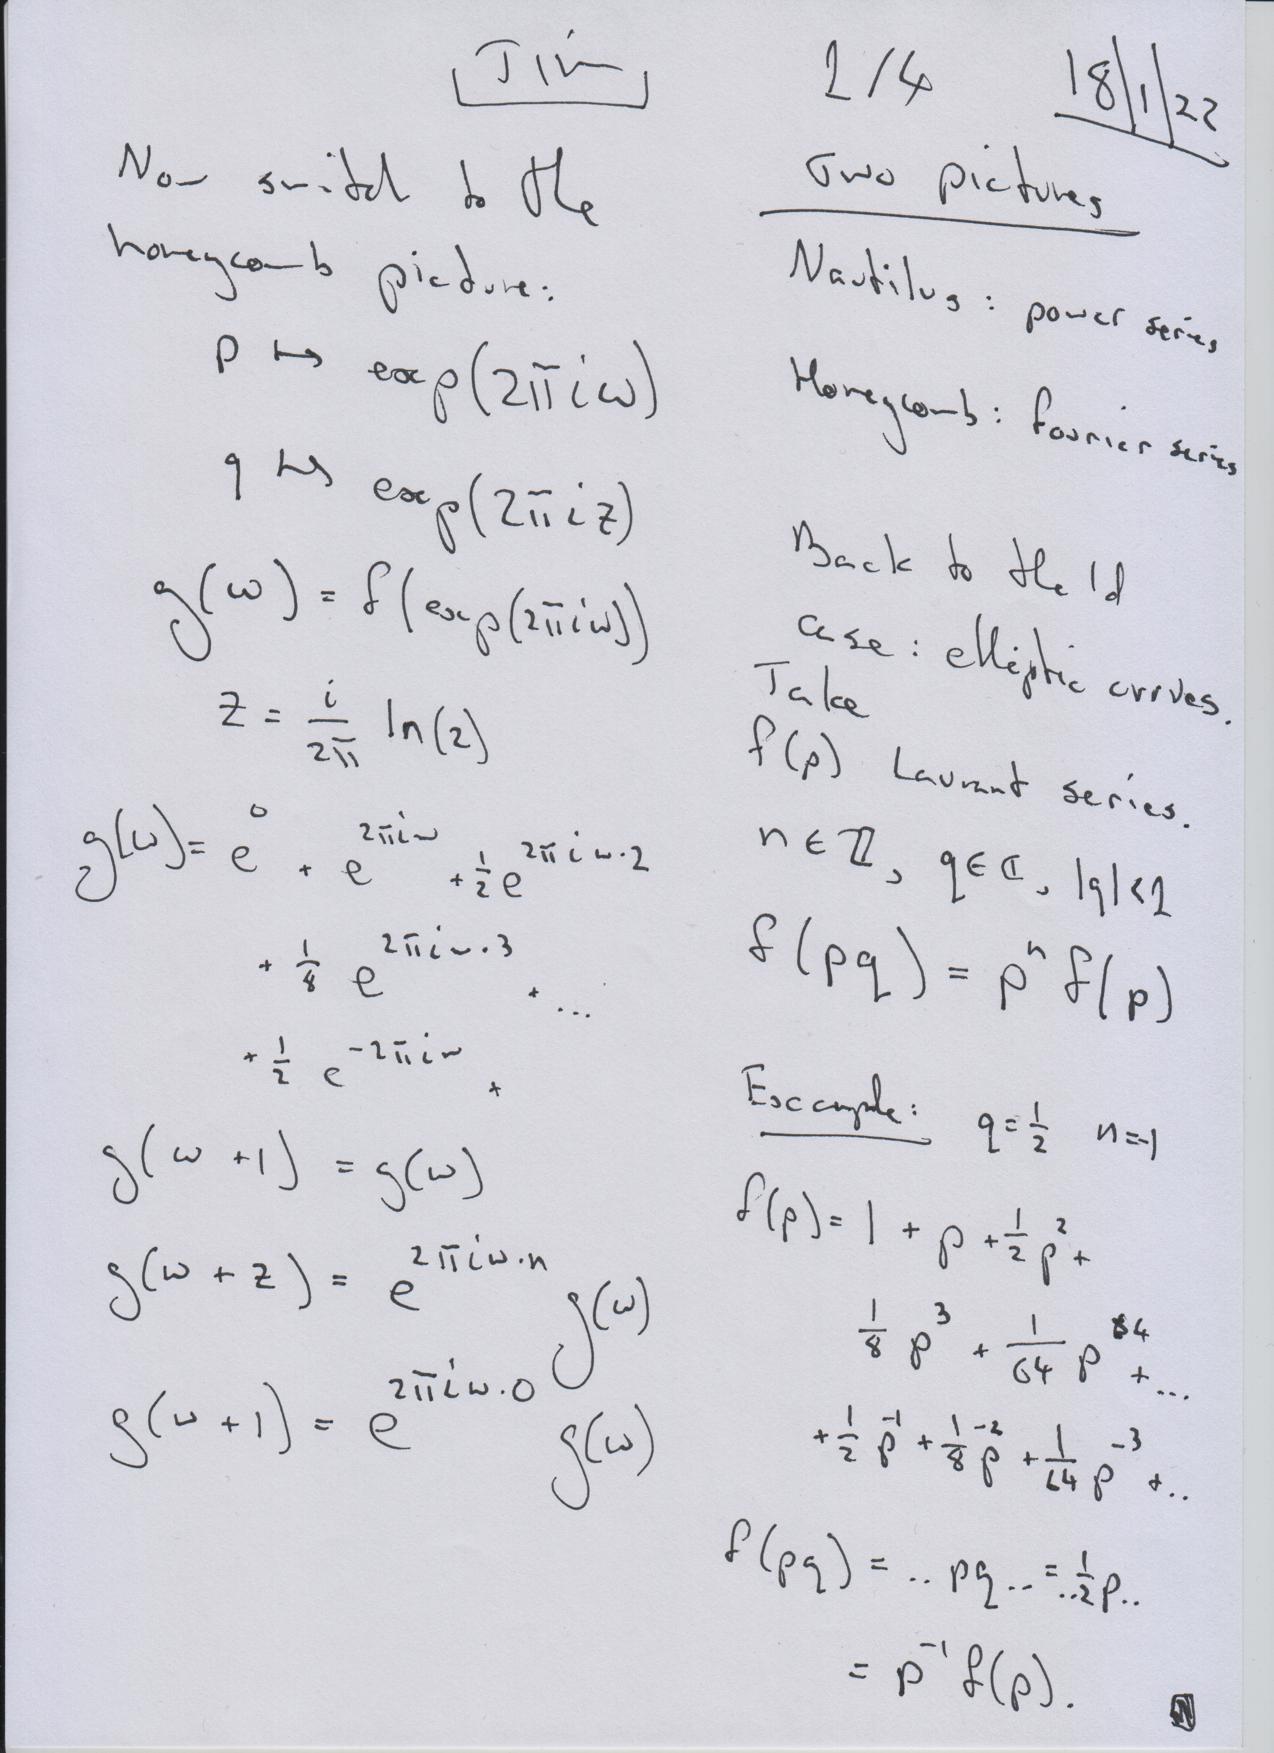 Jim
1/4
18/1/22
Now switch to the
honeycomb picture:
p ↦ exp(2πiω)
q ↦ exp(2πiz)
g(ω) = f(exp(2πiω))
z = i/2π ln(2)
g(ω) = e^0 + e^{2πiω} + 1/2 e^{2πiω·2}
+ 1/8 e^{2πiω·3} + ...
+ 1/2 e^{-2πiω} +
g(ω+1) = g(ω)
g(ω+z) = e^{2πiω·n} g(ω)
g(ω+1) = e^{2πiω·0} g(ω)
Two pictures
Nautilus: power series
Honeycomb: fourier series
Back to the 1d
case: elliptic curves.
Take
f(p) Laurant series.
n∈ℤ, q∈ℂ, |q|<1
f(pq) = p^n f(p)
Example: q=1/2 n=-1
f(p) = 1 + p + 1/2 p^2 +
1/8 p^3 + 1/64 p^4 + ...
+ 1/2 p^{-1} + 1/8 p^{-2} + 1/64 p^{-3} + ..
f(pq) = .. pq .. = .. 1/2 p ..
= p^{-1} f(p).